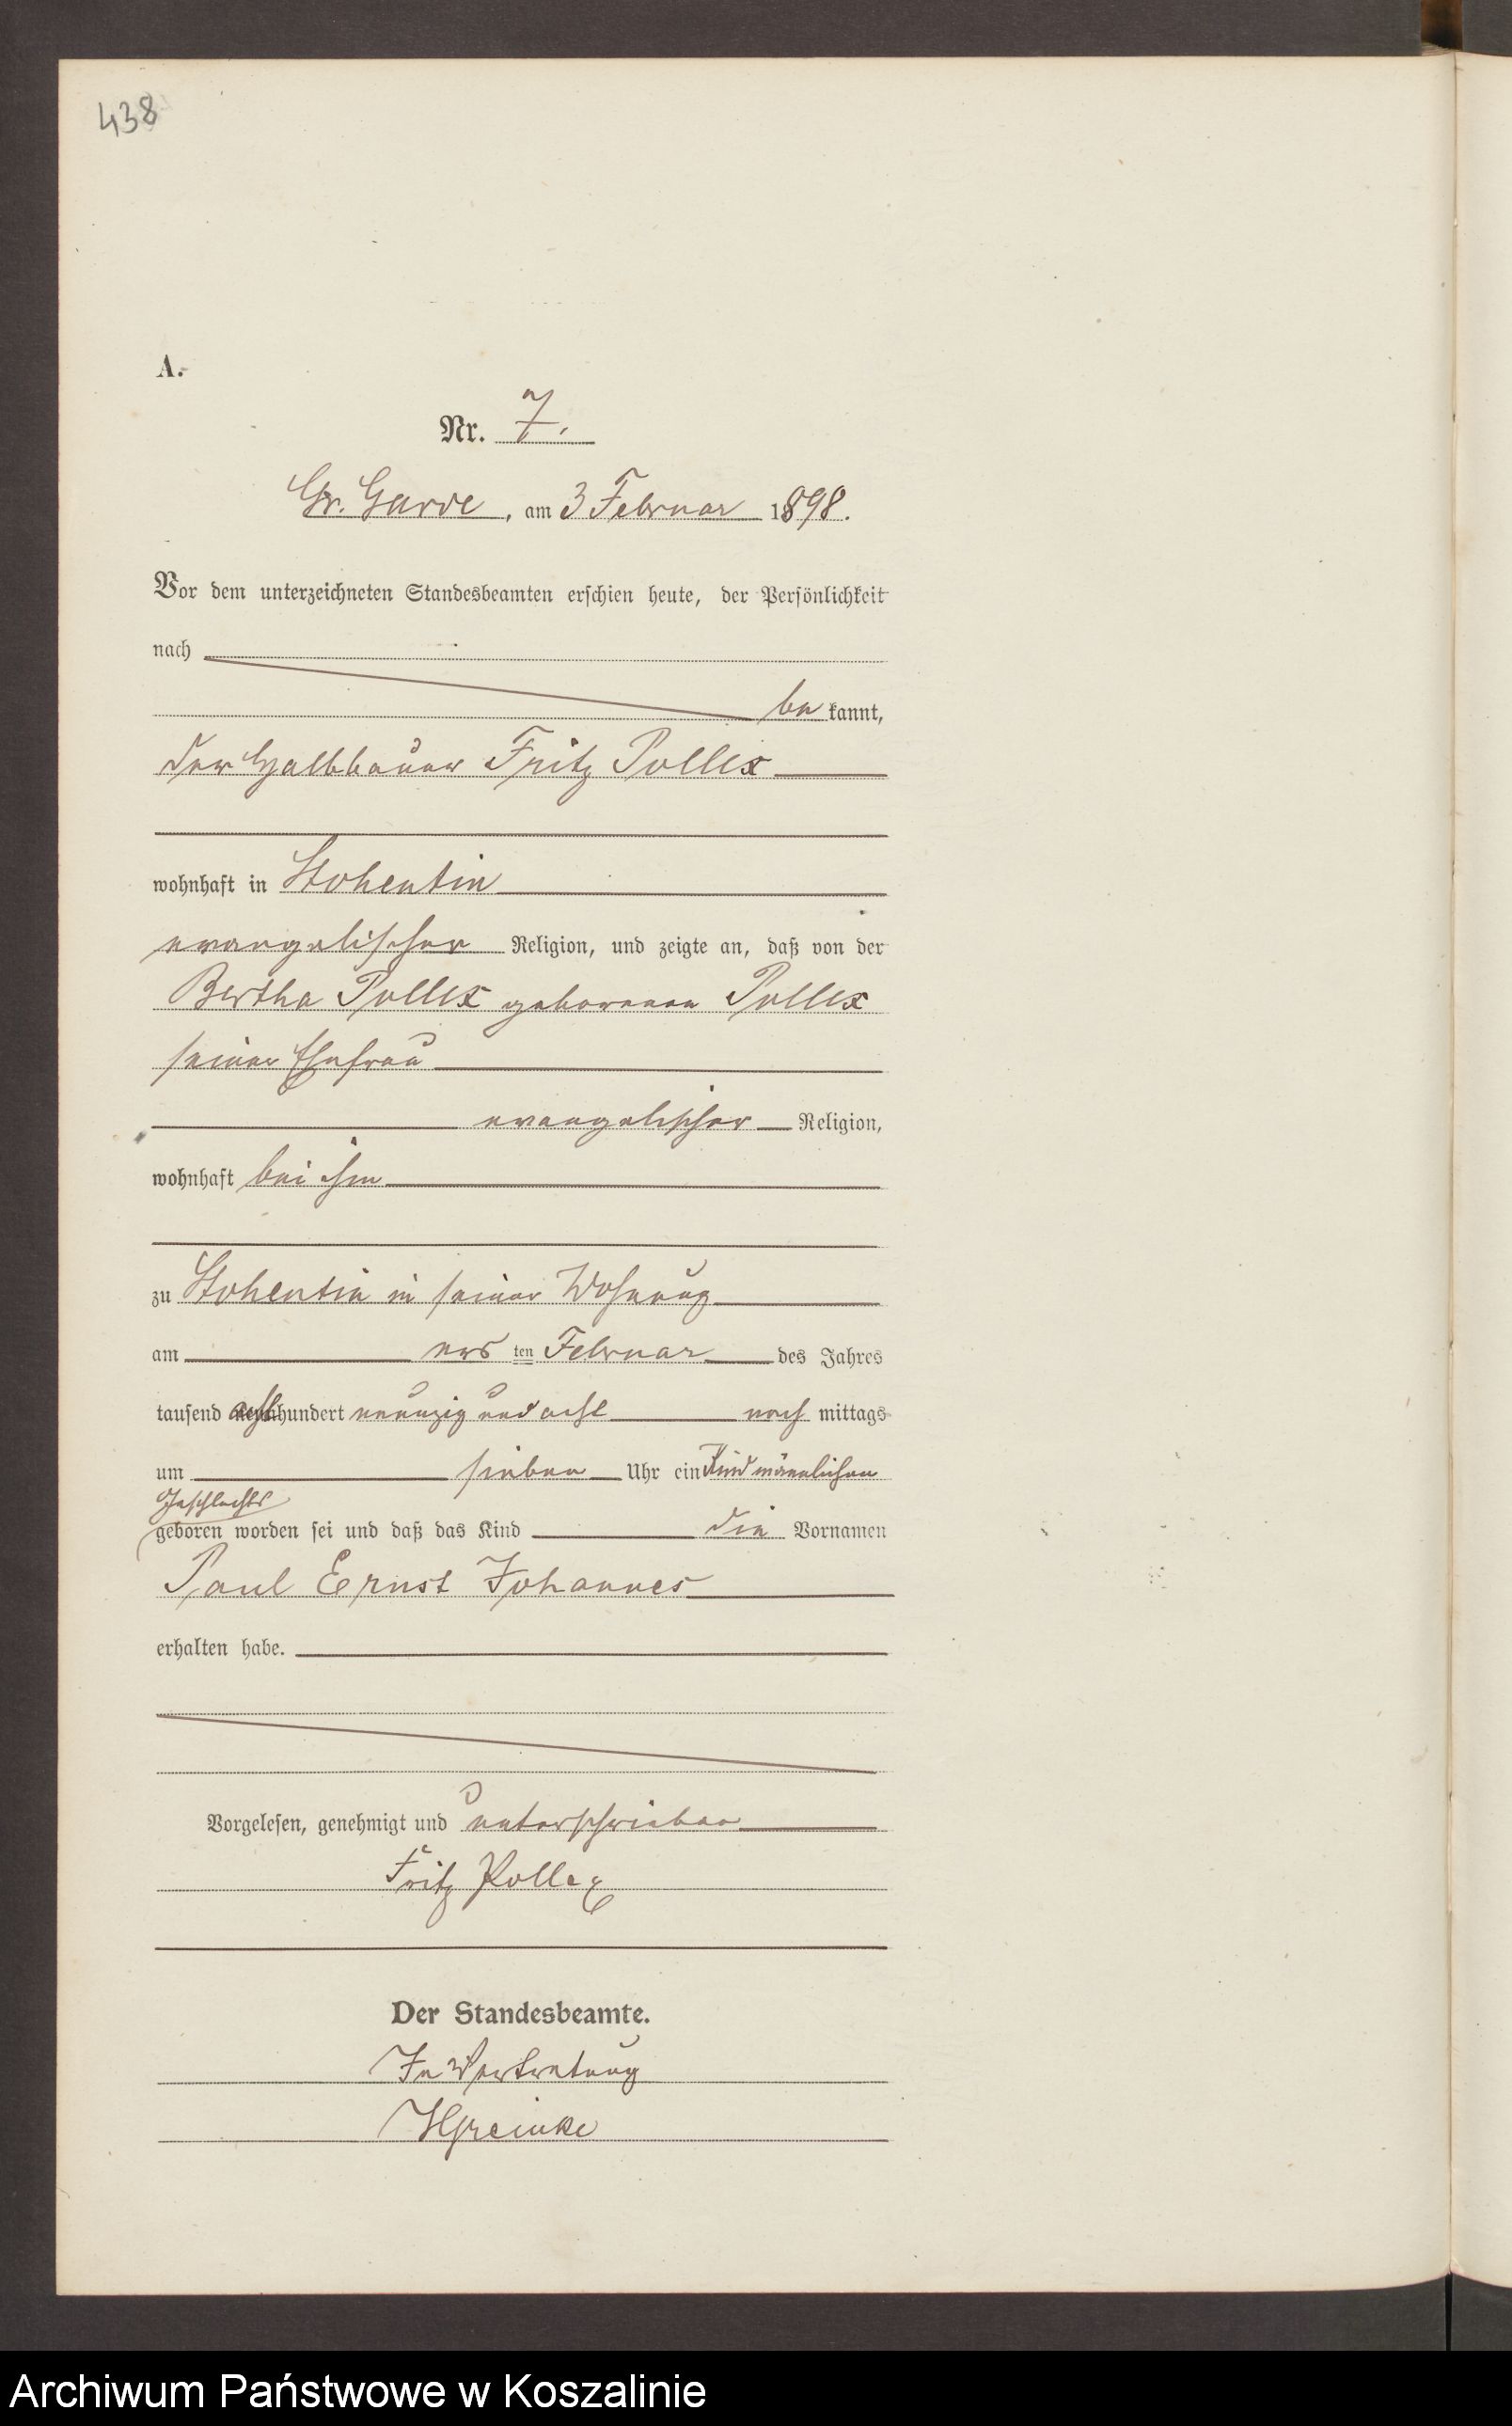 438
A.
Nr. 7.
Gr. Garde, am 3 Februar 1898.
Vor dem unterzeichneten Standesbeamten erschien heute, der Persönlichkeit
nach
be kannt,
der Halbbauer Fritz Pollex
wohnhaft in Stohentin
evangelischer Religion, und zeigte an, daß von der
Bertha Pollex geborenen Pollex
seiner Ehefrau
evangelischer Religion,
wohnhaft bei ihm
zu Stohentin in seiner Wohnung
am ers ten Februar des Jahres
tausend achthundert neunzig und acht nach mittags
um sieben Uhr ein Kind männlichen
Geschlechts
geboren worden sei und daß das Kind die Vornamen
Paul Ernst Johannes
erhalten habe.
Vorgelesen, genehmigt und unterschrieben
Fritz Pollex
Der Standesbeamte.
In Vertretung
Archiwum Państwowe w Koszalinie